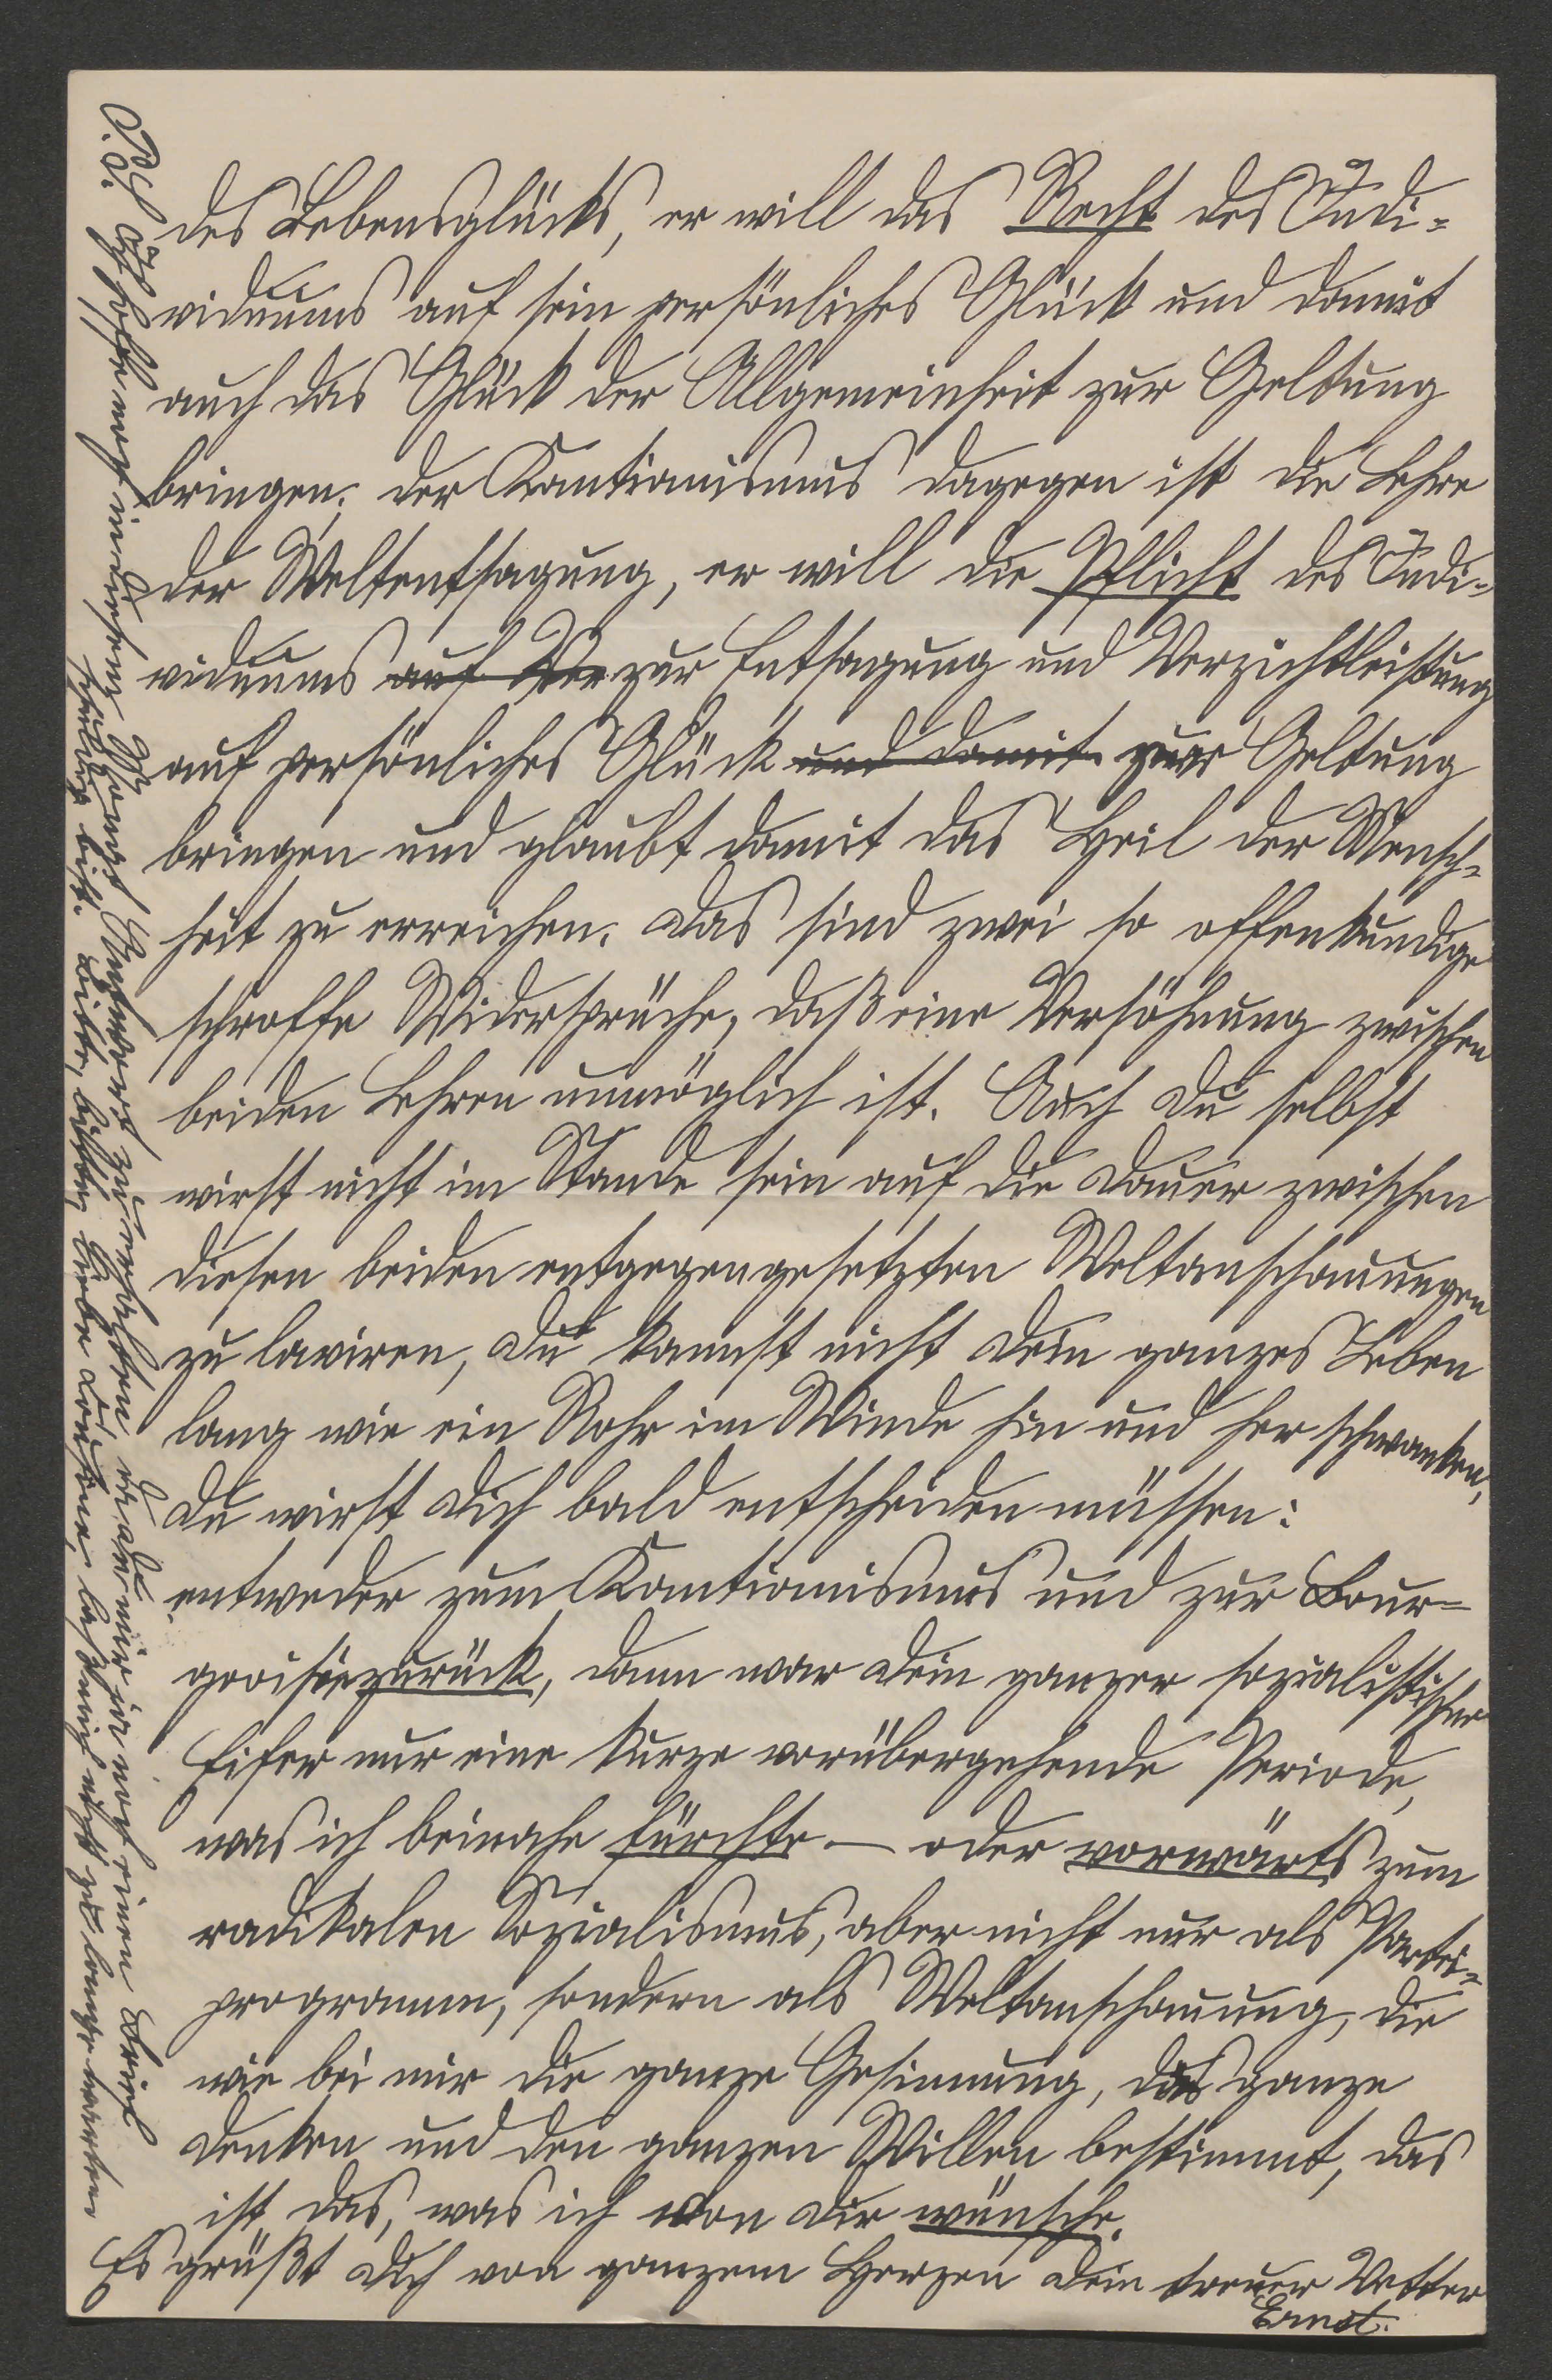 des Lebensglücks, er will das Recht des Indi-
viduums auf sein persönliches Glück und damit
auch das Glück der Allgemeinheit zur Geltung
bringen; der Kantianismus dagegen ist die Lehre
der Weltentsagung, er will die Pflicht des Indi-
viduums auf Ver zur Entsagung und Verzichtleistung
auf persönliches Glück und damit zur Geltung
bringen und glaubt damit das Heil der Mensch-
heit zu erreichen. Das sind zwei so offenkundige
schroffe Widersprüche, daß eine Versöhnung zwischen
beiden Lehren unmöglich ist. Auch Du selbst
wirst nicht im Stande sein auf die Dauer zwischen
diesen beiden entgegengesetzten Weltanschauungen
zu laviren, Du kannst nicht Dein ganzes Leben
lang wie ein Rohr im Winde hin und her schwanken,
Du wirst Dich bald entscheiden müssen:
entweder zum Kantianismus und zur Bour-
geoisie zurück, dann war Dein ganzer sozialistischer
Eifer nur eine kurze vorübergehende Periode,
was ich beinahe fürchte – oder vorwärts zum
radikalen Sozialismus, aber nicht nur als Partei-
programm, sondern als Weltanschauung, die
wie bei mir die ganze Gesinnung, das ganze
Denken und den ganzen Willen bestimmt, das
ist das, was ich von Dir wünsche.
Es grüßt Dich von ganzem Herzen Dein treuer Vetter
Ernst.
P.S. Ich hoffe noch in diesem Monat Antwort zu erhalten, da Du mir ja noch einen Brief
schuldig bist. Bitte, bitte, liebe Louise, laß mich nicht zu lange warten